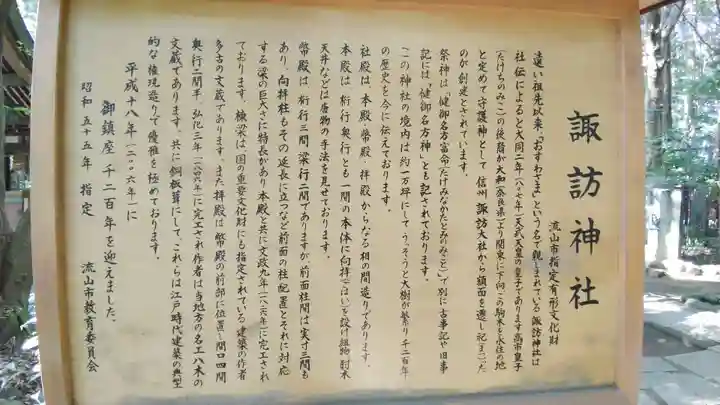 諏訪神社
流山市指定有形文化財
遠い祖先以来、「おすわさま」という名で親しまれている諏訪神社は
社伝によると大同二年(八〇七年)天武天皇の皇子であります高市皇子
(たけちのみこ)の後裔が大和(奈良県)より関東に下向、この駒木を永住の地
と定めて守護神として、信州諏訪大社から額面を遷し祀まつった
のが創建とされています。
祭神は「健御名方富命(たけみなかたとみのみこと)」で別に古事記や旧事
記には「健御名方神」とも記されております。
この神社の境内は約一万坪にしてうっそうと大樹が繁り千二百年
の歴史を今に伝えております。
社殿は本殿、幣殿、拝殿からなる相の間造りであります。
本殿は桁行奥行とも一間の本体に向拝(ごはい)を設け組物肘木
天井などは唐物の手法を見せております。
幣殿は桁行三間梁行二間でありますが、前面柱間は実寸三間も
あり、向拝柱もその延長に立つなど前面の柱配置とそれに対応
する梁の巨大さに特長があり本殿と共に文政九年(一八二六年)に完工され
ております。棟梁は、国の重要文化財にも指定されている建築の作者
多古の文蔵であります。また拝殿は幣殿の前部に位置し間口四間
奥行二間半、弘化三年(一八四六年)に完工され作者は当地方の名工八木の
文蔵であります。共に銅板葺にして、これらは江戸時代建築の典型
的な権現造りで優雅を極めております。
平成十八年(二〇〇六年)に
御鎮座千二百年を迎えました。
昭和五十五年 指定
流山市教育委員会